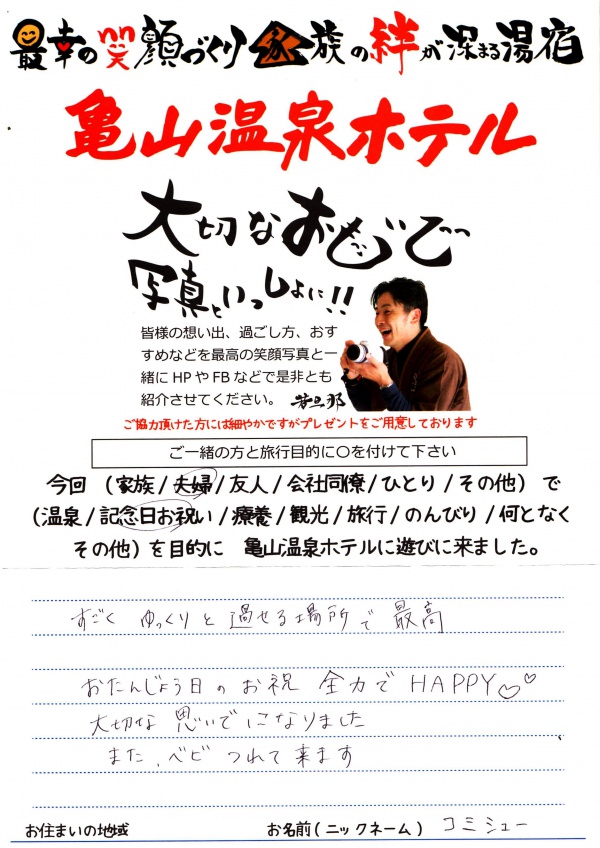 最幸の笑顔づくり 家族の絆が深まる湯宿
亀山温泉ホテル
大切なおもいで
写真といっしょに!!
皆様の想い出、過ごし方、おす
すめなどを最高の笑顔写真と一
緒にHPやFBなどで是非とも
紹介させてください。 若旦那
ご協力頂けた方には細やかですがプレゼントをご用意しております
ご一緒の方と旅行目的に〇を付けて下さい
今回 (家族/夫婦/友人/会社同僚/ひとり/その他) で
(温泉/記念日お祝い/療養/観光/旅行/のんびり/何となく
その他) を目的に 亀山温泉ホテルに遊びに来ました。
すごく ゆっくりと過せる場所で 最高
おたんじょう日のお祝 全力で HAPPY♡♡
大切な思いでになりました
また、ベビつれて来ます
お住まいの地域 お名前(ニックネーム) コミシュー